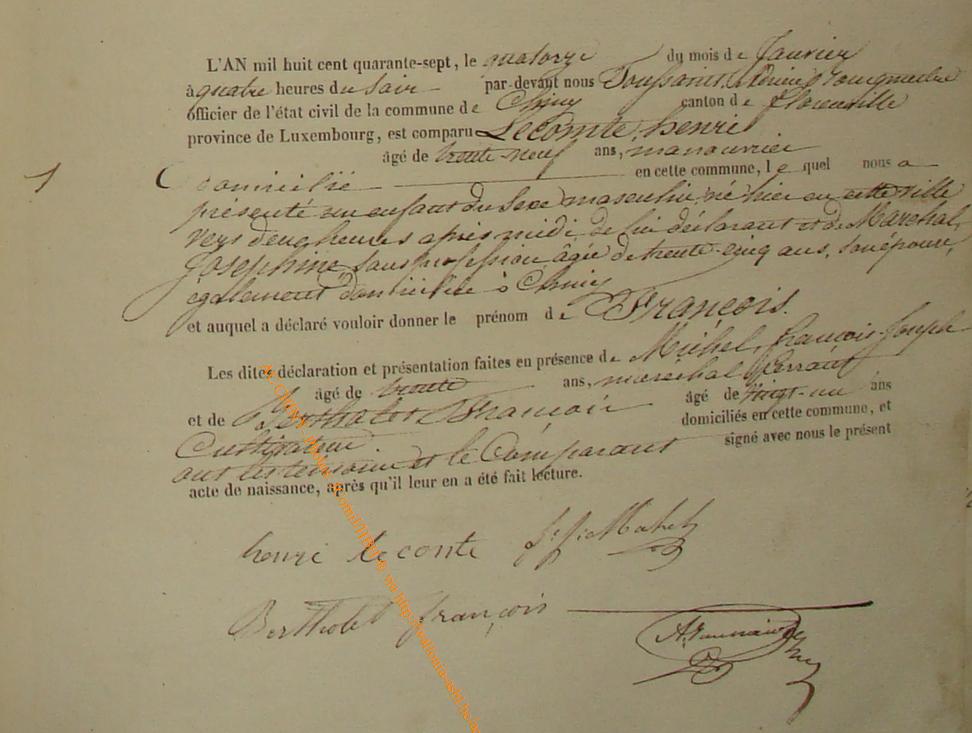 L'AN mil huit cent quarante-sept, le quatorze du mois de Janvier
à quatre heures du Soir par-devant nous Toussaint,
officier de l'état civil de la commune de Chiny canton de florenville
province de Luxembourg, est comparu Lecomte, henri
âgé de trente-neuf ans, manouvrier
1 domicilié en cette commune, lequel nous a
présenté un enfant du sexe masculin, né hier en cette ville
vers deux heures après midi, de lui déclarant et de Maréchal,
Josephine, sans profession âgée de trente-cinq ans, son épouse,
également domiciliée à Chiny
et auquel a déclaré vouloir donner le prénom de François.
Les dites déclaration et présentation faites en présence de Michel, françois-Joseph
âgé de trente ans, marechal ferrant
et de Bertholet François âgé de vingt-un ans
Cultivateur domiciliés en cette commune, et
ont les temoins et le Comparant signé avec nous le présent
acte de naissance, après qu'il leur en a été fait lecture.
henri leconte f. J. Michel
Bertholet françois